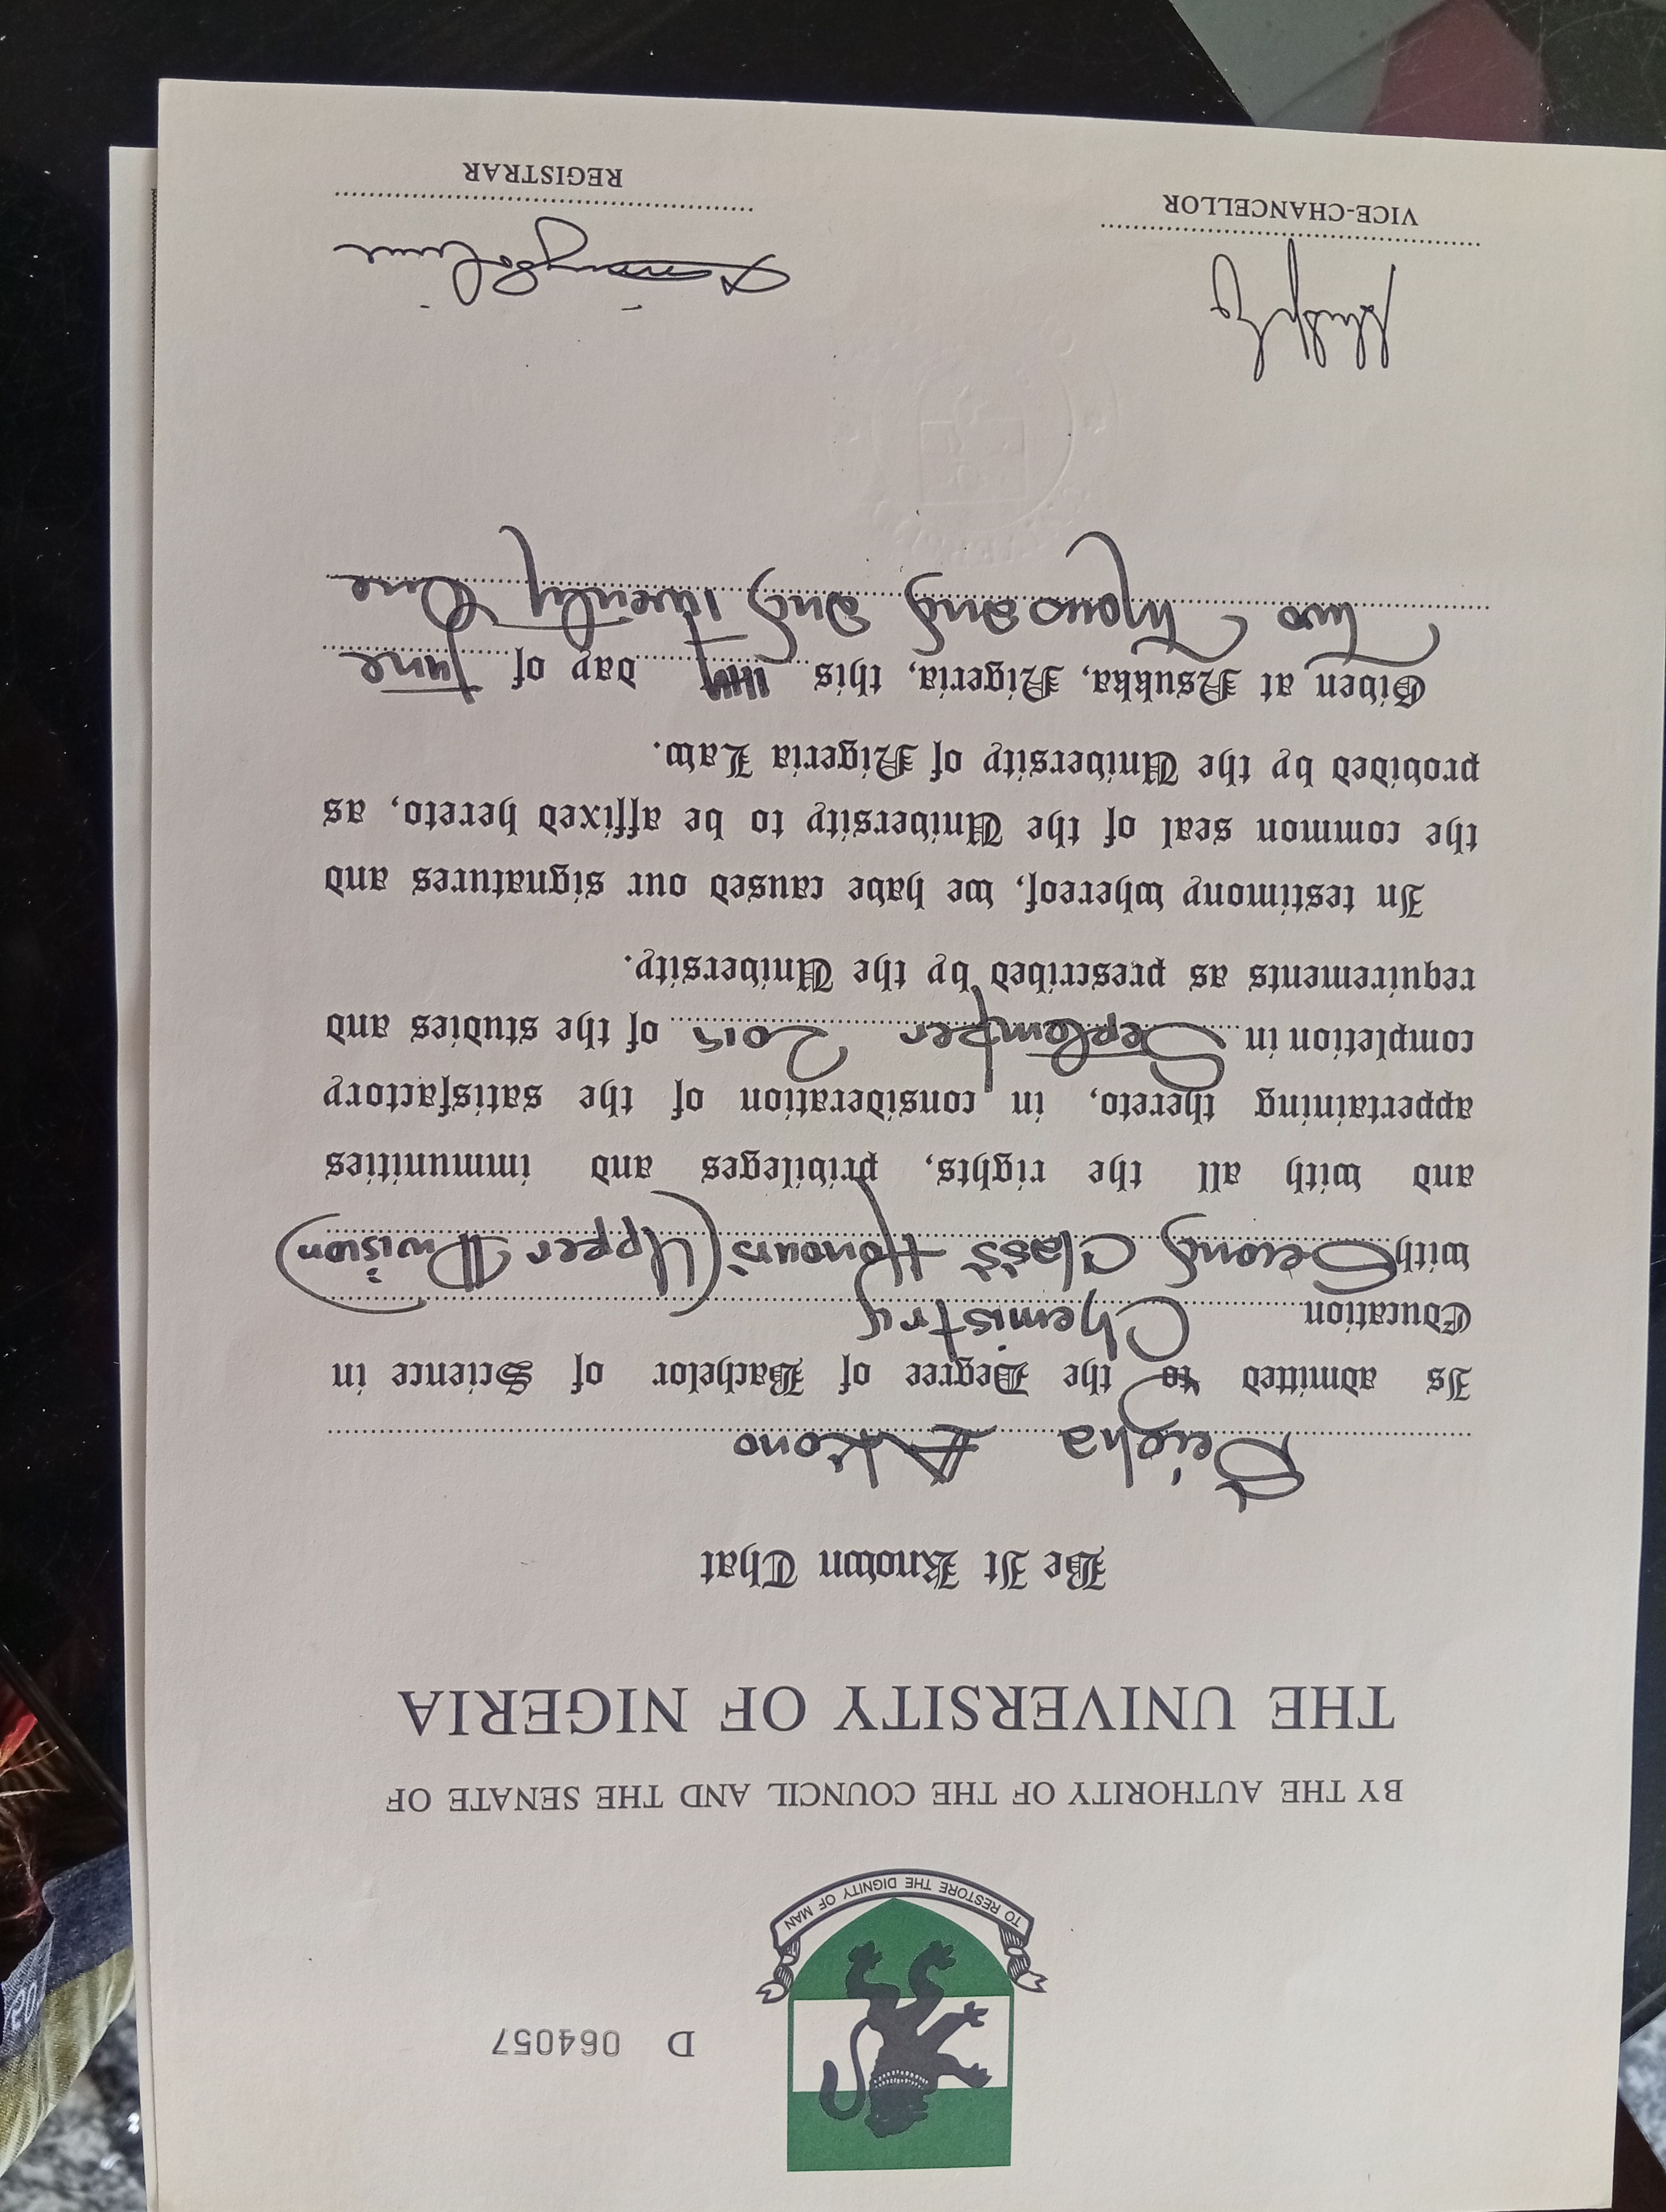 D 064057
TO RESTORE THE DIGNITY OF MAN
BY THE AUTHORITY OF THE COUNCIL AND THE SENATE OF
THE UNIVERSITY OF NIGERIA
Be It Known That
Peigha Akono
Is admitted to the Degree of Bachelor of Science in
Education Chemistry
with Second Class Honours (Upper Division)
and with all the rights, privileges and immunities
appertaining thereto, in consideration of the satisfactory
completion in September 2015 of the studies and
requirements as prescribed by the University.
In testimony whereof, we have caused our signatures and
the common seal of the University to be affixed hereto, as
provided by the University of Nigeria Law.
Given at Nsukka, Nigeria, this day of June
Two Thousand and Twenty One
VICE-CHANCELLOR
REGISTRAR